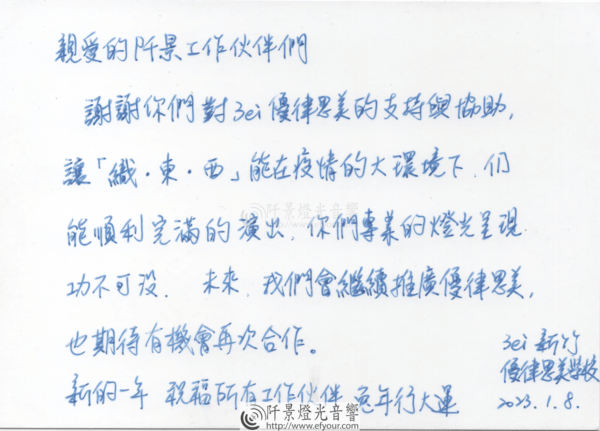 親愛的阡景工作伙伴們
謝謝你們對3ei優律思美的支持與協助,
讓「織·東·西」能在疫情的大環境下,仍
能順利完滿的演出,你們專業的燈光呈現
功不可没. 未來,我們會繼續推廣優律思美,
也期待有機會再次合作。
新的一年 祝福所有工作伙伴 兔年行大運
3ei 新竹
優律思美學校
2023.1.8.
阡景燈光音響
www.efyour.com
阡景燈光音響
www.efyour.com